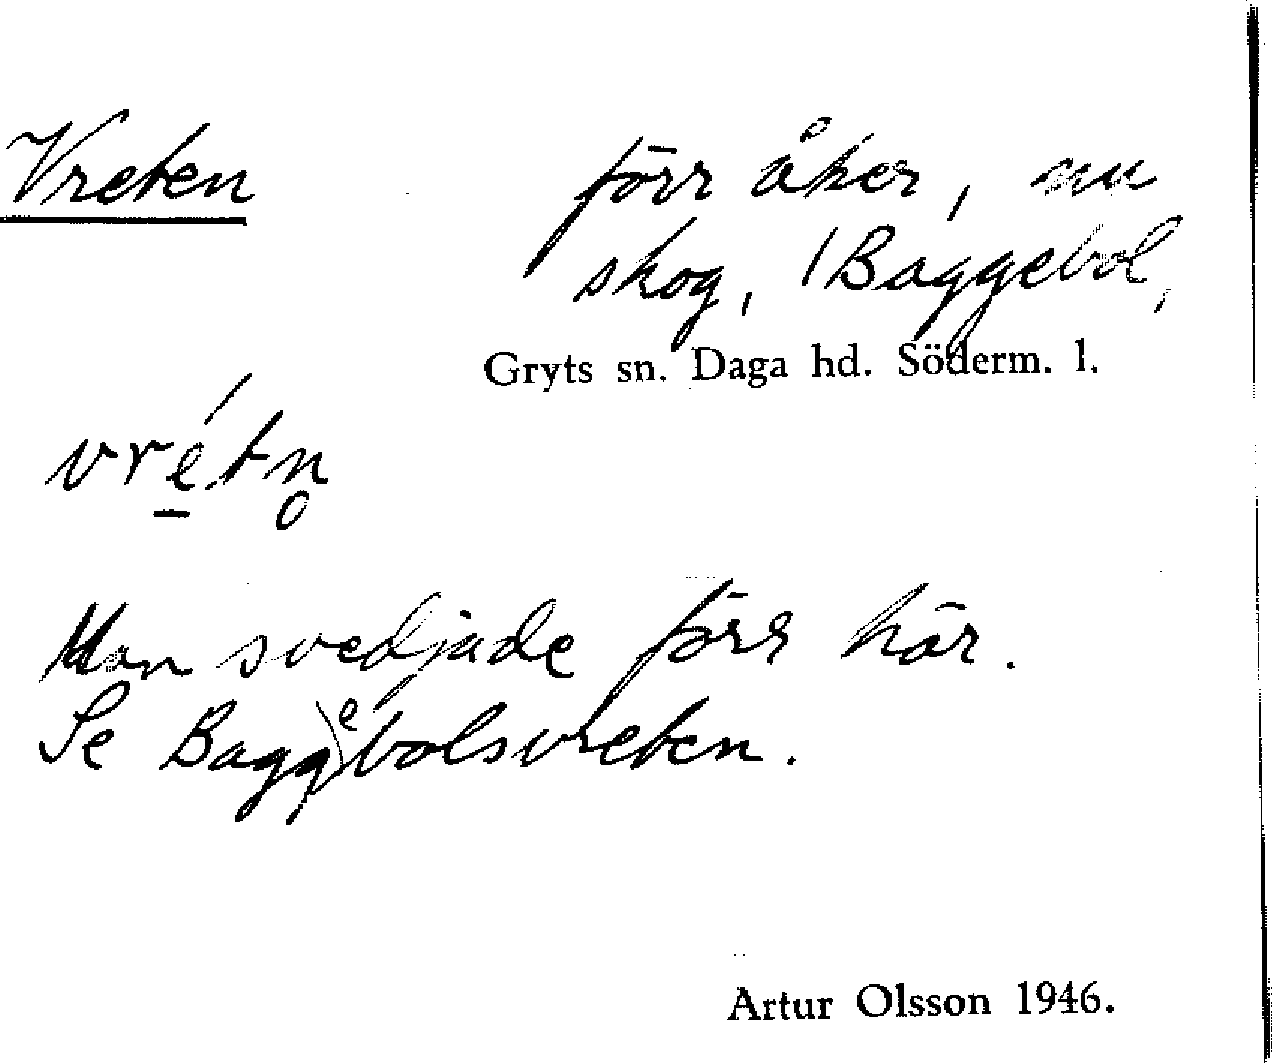 Vreten
förr åker, nu
skog, /Baggebol,
Gryts sn. Daga hd. Söderm. l.
vre̲´tn̥
Man svedjade förr här.
Se Baggebolsvreten.
Artur Olsson 1946.